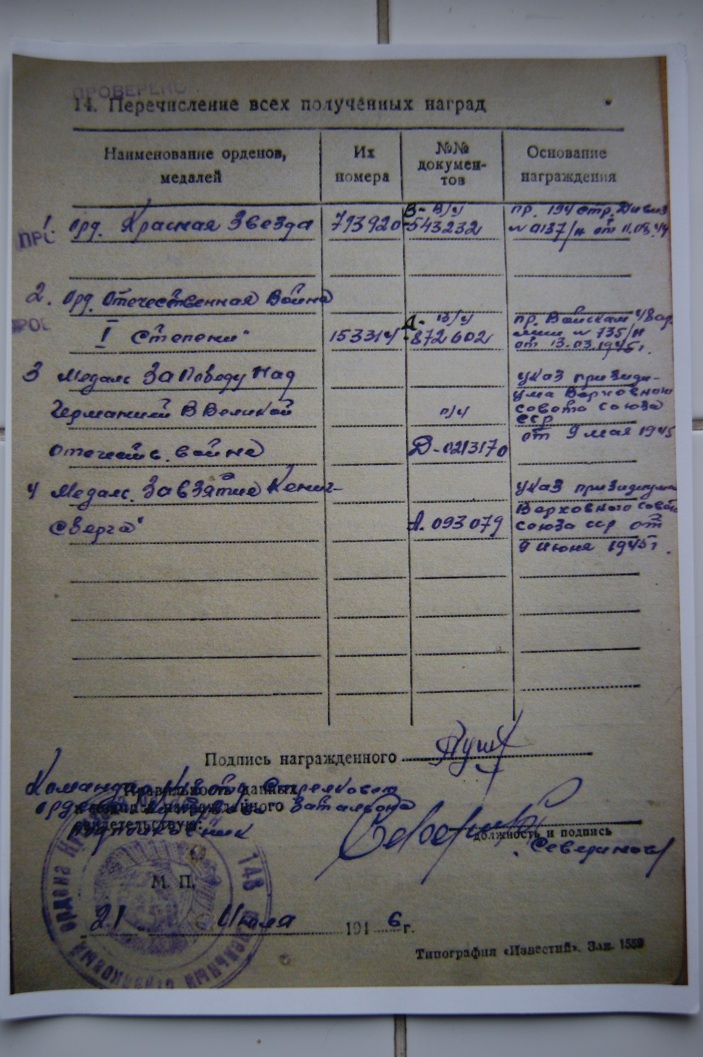 ПРОВЕРЕНО
14. Перечисление всех полученных наград
Наименование орденов, медалей
Их номера
№№ документов
Основание награждения
1. Орд. Красная Звезда 793920 В- в/ч 543232 пр. 194 стр. Дивиз
№ 0137/н от 11.08.44
ПРО
2. Орд. Отечественная Война
I Степени" 153314 Д- в/ч 872602 пр. Войскам
№ 735/н
от 13.03.1945г.
3 Медаль За Победу Над указ президи-
ума Верховного
Германией В Великой п/ч совета союза
сср
Отечеств. война Д-0213170 от 9 мая 1945
4 Медаль. За взятие Кениг- указ президиума
Верховного сове
сберга" А. 093079 союза сср от
9 июня 1945г.
Подпись награжденного
Правильность данных
о награжденного
свидетельствую:
Стрелкового
Батальона
должность и подпись
Северинов
М. П.
148
ордена
21 Июля 1946 г.
Типография «Известий». Зак. 1559